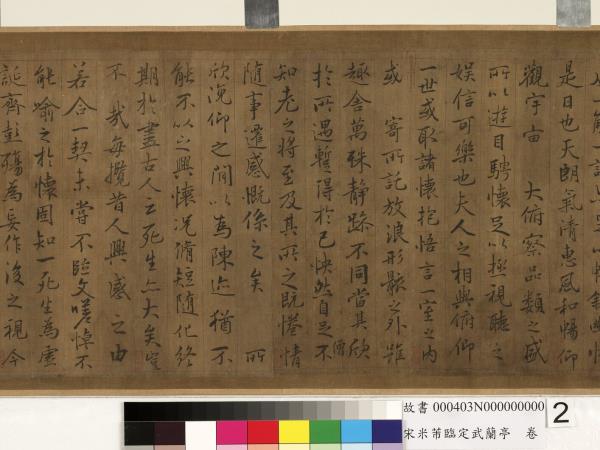 是日也天朗氣清惠風和暢仰
觀宇宙 大俯察品類之盛
所以遊目騁懷足以極視聽之
娛信可樂也夫人之相與俯仰
一世或取諸懷抱悟言一室之內
或 寄所託放浪形骸之外雖
趣舍萬殊靜躁不同當其欣
於所遇暫得於己怏然自足不
知老之將至及其所之既惓情
隨事遷感慨係之矣 所
欣俛仰之間以為陳迹猶不
能不以之興懷況脩短隨化終
期於盡古人云死生亦大矣豈
不 哉每攬昔人興感之由
若合一契未嘗不臨文嗟悼不
能喻之於懷固知一死生為虛
誕齊彭殤為妄作後之視今
故書 000403N000000000
2
宋米芾臨定武蘭亭 卷